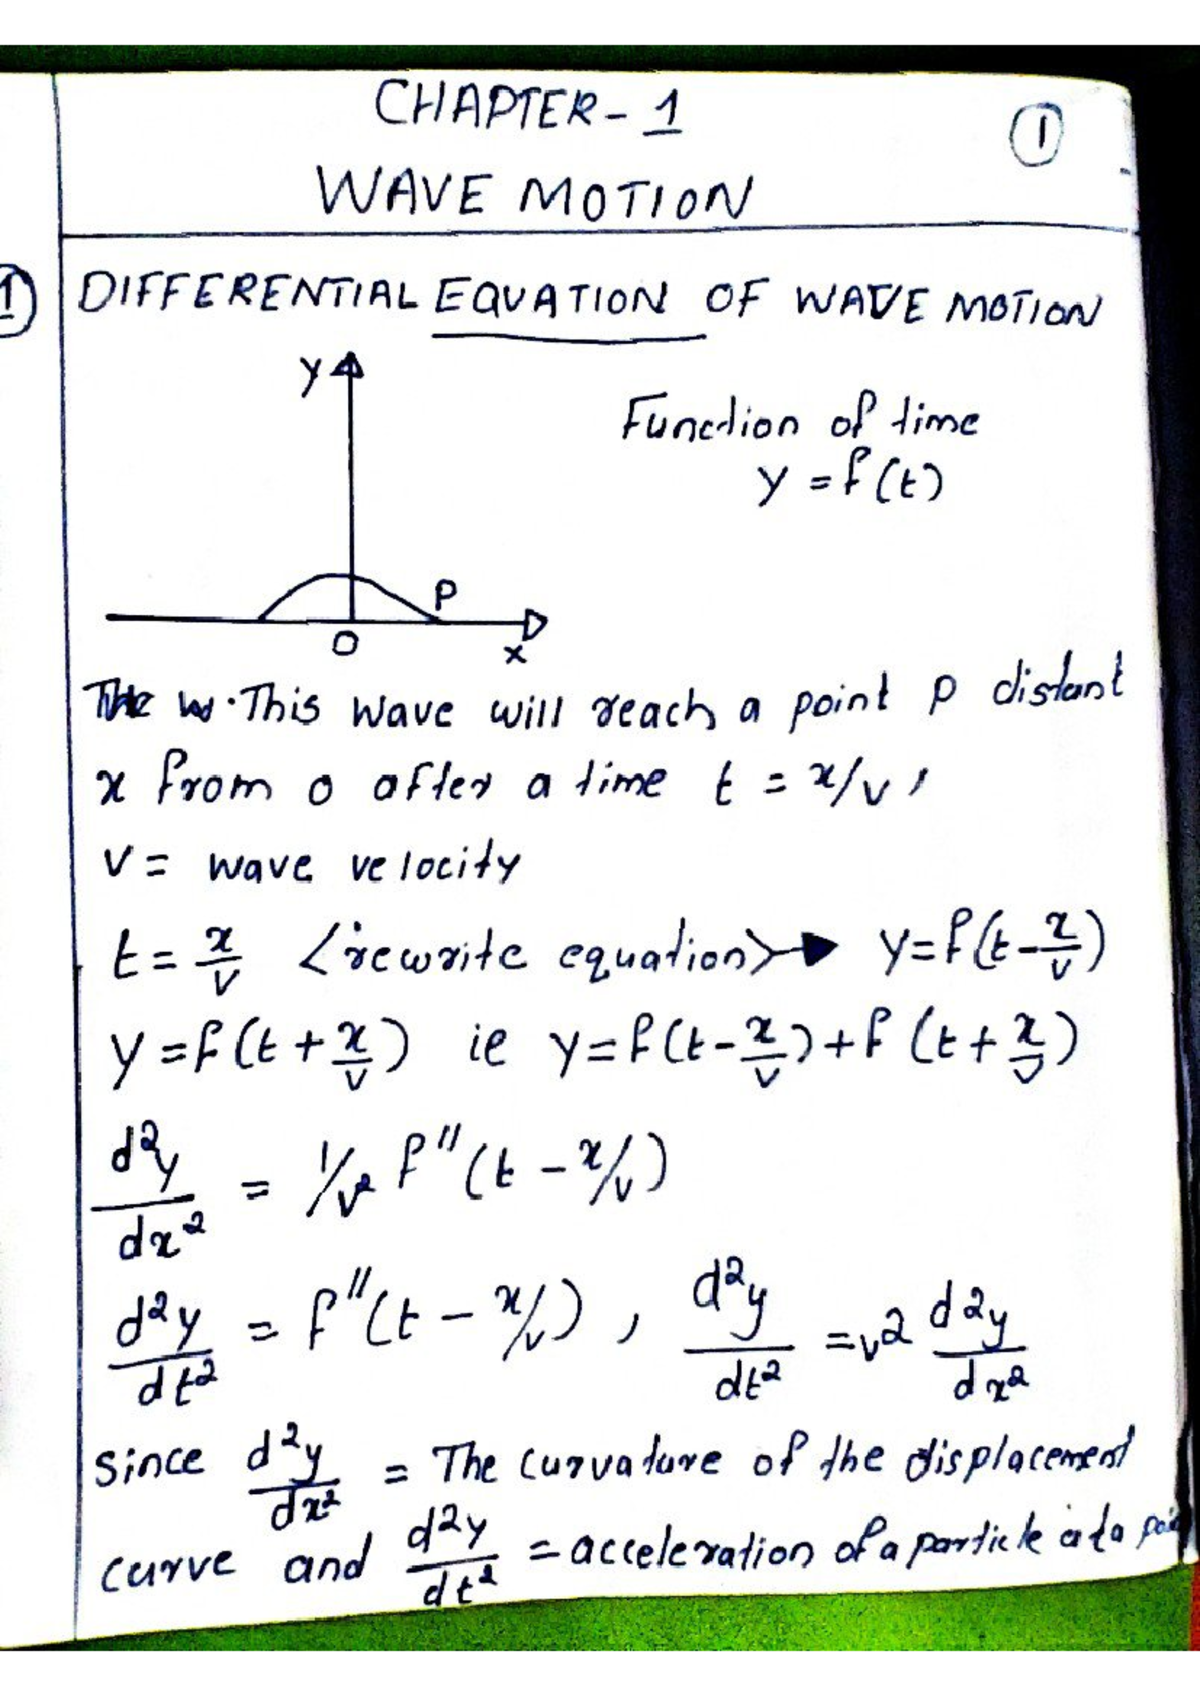 CHAPTER-1
1
WAVE MOTION
1) DIFFERENTIAL EQUATION OF WAVE MOTION
y
Function of time
y = f(t)
P
O
x
This wave will reach a point P distant
x from o after a time t = x/v,
v = wave velocity
t = x/v <rewrite equation> → y=f(t-x/v)
y = f(t + x/v) ie y=f(t-x/v)+f(t+x/v)
d²y/dx² = 1/v² f''(t - x/v)
d²y/dt² = f''(t - x/v), d²y/dt² = v² d²y/dx²
Since d²y/dx² = The curvature of the displacement
curve and d²y/dt² = acceleration of a particle at a